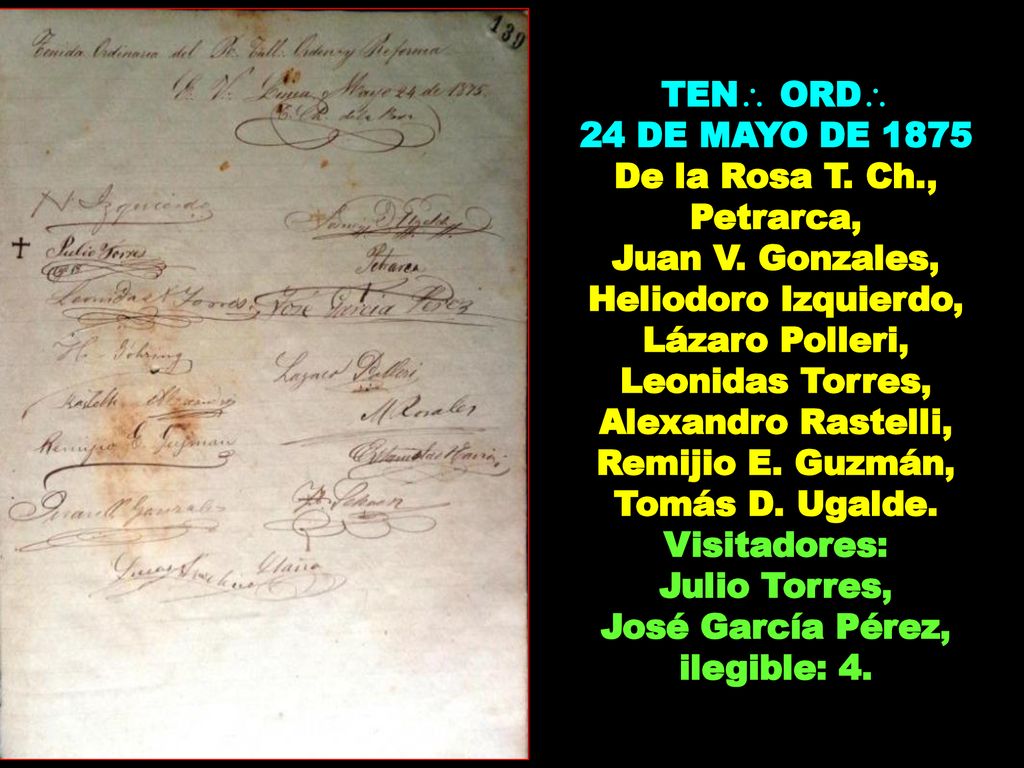 139
Tenida Ordinaria del R. Tall. Orden y Reforma
E. V. Lima y Mayo 24 de 1875.
T. Ch. de la Rosa
H Izquierdo
Tomás D Ugalde
Julio Torres
Petrarca
Leonidas Torres
José García Pérez
H. Göhring
Lazaro Polleri
Rastelli Alexandro
M Rosales
Remijio E. Guzman
Juan V Gonzales
TEN∴ ORD∴
24 DE MAYO DE 1875
De la Rosa T. Ch.,
Petrarca,
Juan V. Gonzales,
Heliodoro Izquierdo,
Lázaro Polleri,
Leonidas Torres,
Alexandro Rastelli,
Remijio E. Guzmán,
Tomás D. Ugalde.
Visitadores:
Julio Torres,
José García Pérez,
ilegible: 4.